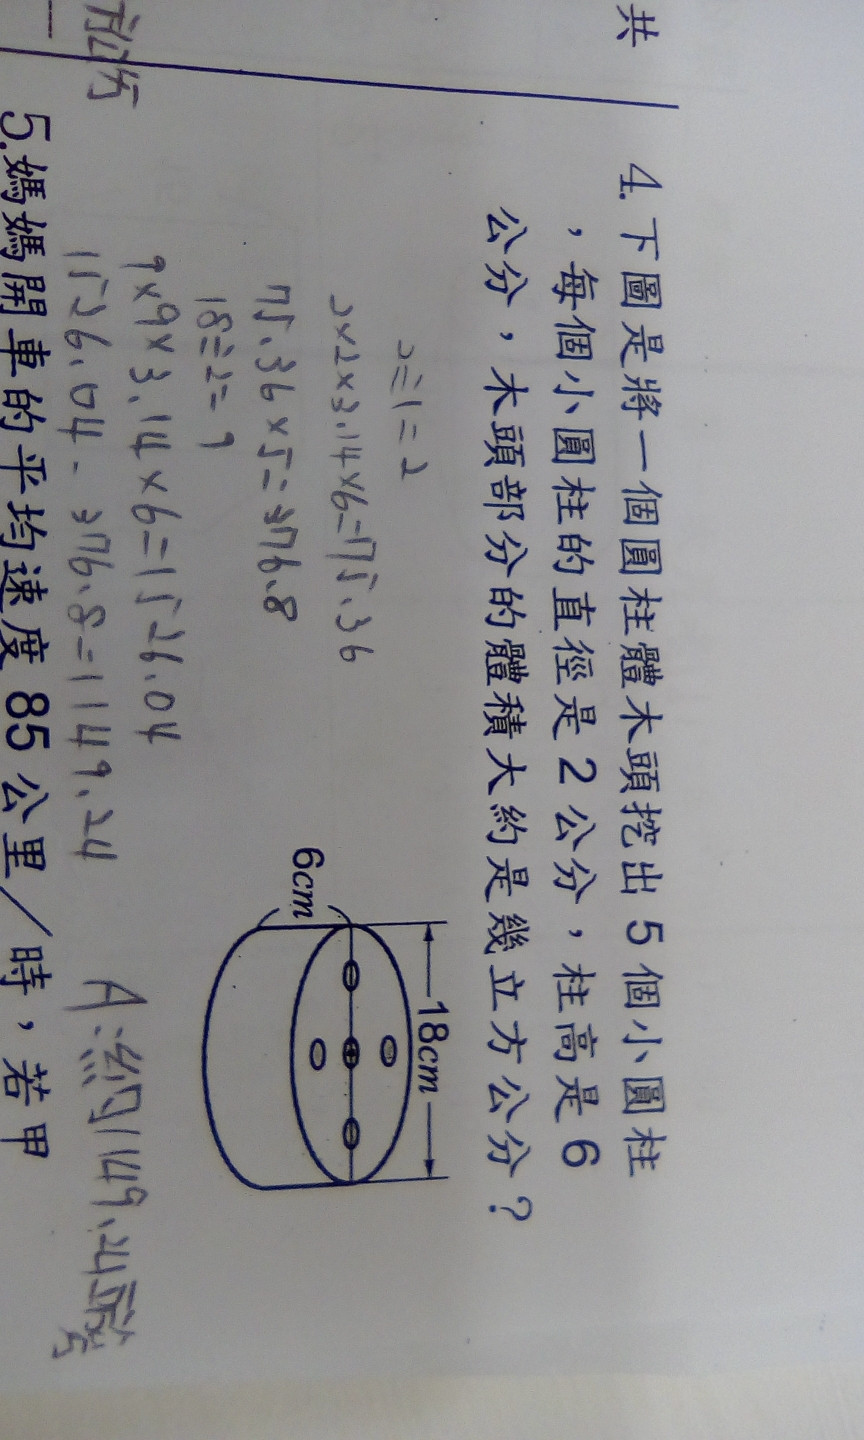 共
4.下圖是將一個圓柱體木頭挖出5個小圓柱
,每個小圓柱的直徑是2公分,柱高是6
公分,木頭部分的體積大約是幾立方公分?
2÷1=2
2×2×3.14×6=75.36
75.36×5=376.8
18÷2=9
9×9×3.14×6=1526.04
1526.04-376.8=1149.24
A:約1149.24立方公分
18cm
6cm
5.媽媽開車的平均速度85公里/時,若甲